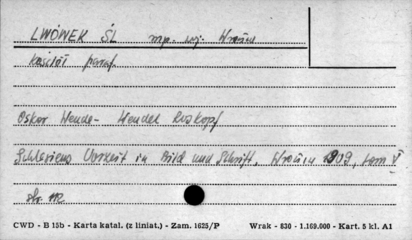 LWÓWEK ŚL mp. woj. Wrocław
kościół paraf.
Oskar Wende - Wendel Roskopf
Schlesiens Vorzeit in Bild und Schrift, 1909, tom V
str. 112
CWD - B 15b - Karta katal. (z liniat.) - Zam. 1625/P Wrak - 830 - 1.169.000 - Kart. 5 kl. A1